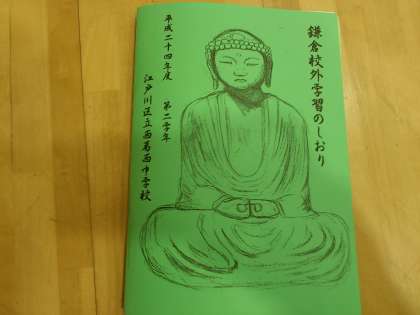 鎌倉校外学習のしおり
平成二十四年度　第二学年
江戸川区立西葛西中学校